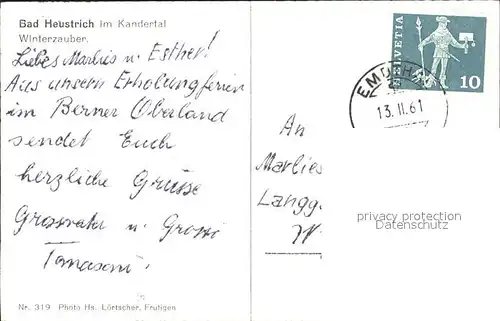 Bad Heustrich im Kandertal
Winterzauber.
Liebes Marlies u. Esther!
Aus unsern Erholungsferien
im Berner Oberland
sendet Euch
herzliche Grüsse
Grossvater u. Grosi
Tomasoni.
Nr. 319 Photo Hs. Lörtscher, Frutigen
HELVETIA
10
EMDTHAL
13.II.61
An
Marlies
Langg
W
privacy protection
Datenschutz